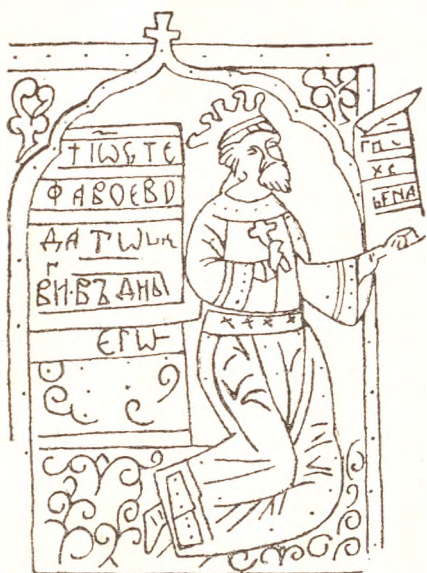 † ІѠ СТЕ
ФАВОЕВО
ДА ТѠМ
Г
ВИ·ВЪ ДНЫ
ЕГѠ
ГП
ХЕ
ЬЕNА